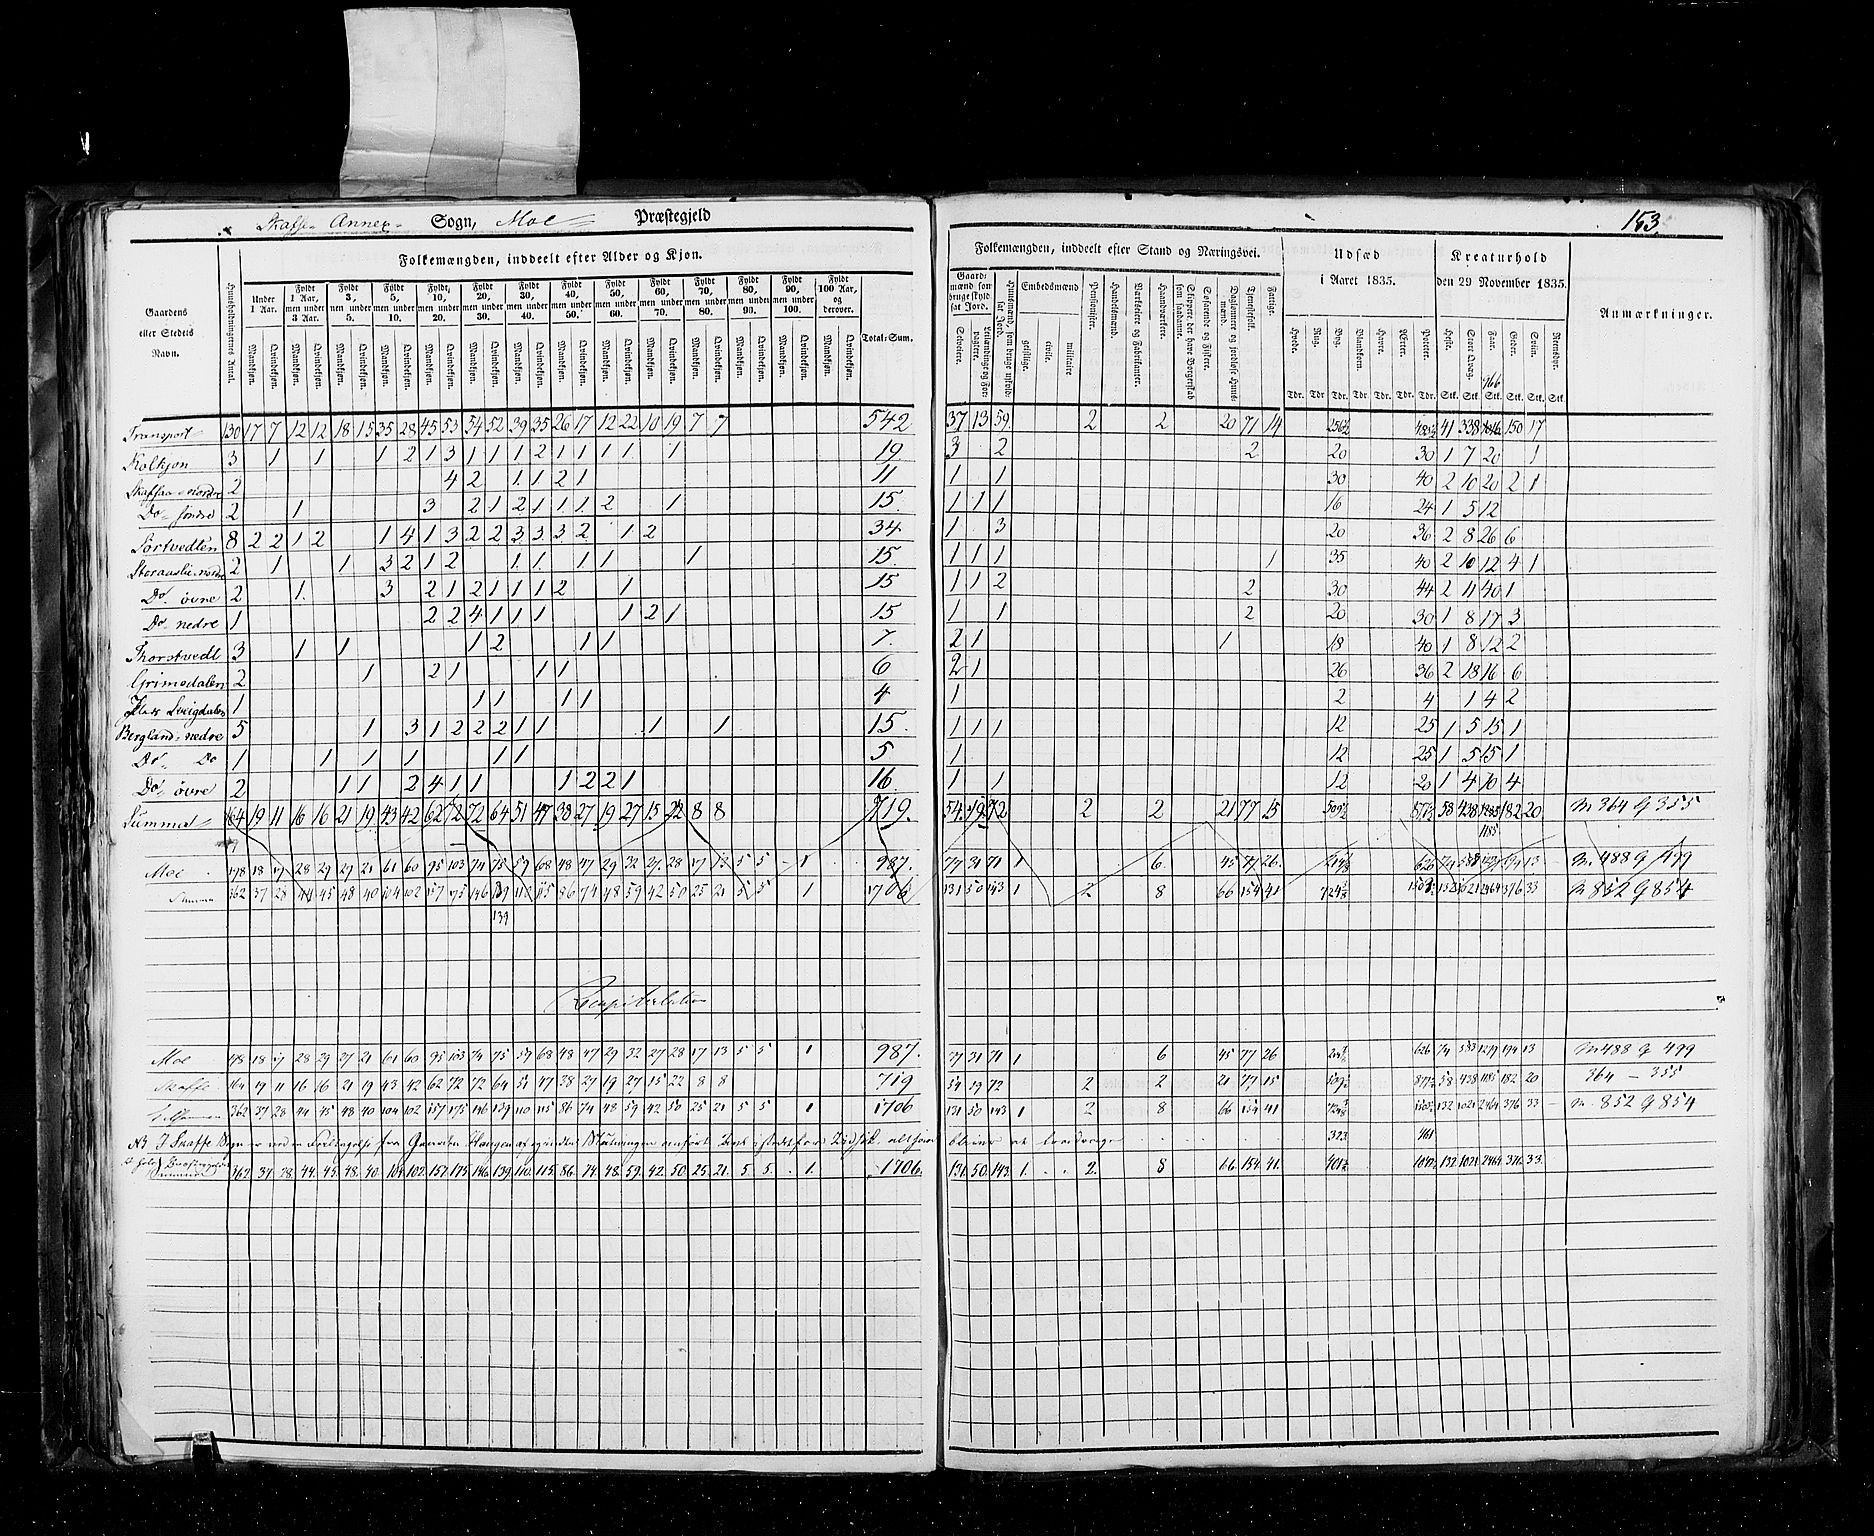 Skafse Annex Sogn, Moe Præstegjeld
153
Folkemængden, inddeelt efter Alder og Kjøn.
Folkemængden, inddeelt efter Stand og Næringsvei.
Udsæd i Aaret 1835.
Kreaturhold den 29 November 1835.
Anmærkninger.
Gaardens eller Stedets Navn.
Huusholdningernes Antal.
Under 1 Aar.
Fyldt 1 Aar, men under 3 Aar.
Fyldt 3, men under 5.
Fyldt 5, men under 10.
Fyldt 10, men under 20.
Fyldt 20, men under 30.
Fyldt 30, men under 40.
Fyldt 40, men under 50.
Fyldt 50, men under 60.
Fyldt 60, men under 70.
Fyldt 70, men under 80.
Fyldt 80, men under 90.
Fyldt 90, men under 100.
Fyldt 100 Aar, og derover.
Total-Sum.
Mandkjøn. Qvindekjøn.
Gaardmænd som bruge skyldsat Jord.
Selveiere.
Leilændinge og Forpagtere.
Huusmænd, som bruge uskyldsat Jord.
Embedsmænd
geistlige.
civile.
militaire
Pensionister.
Handelsmænd.
Værkseiere og Fabrikanter.
Handværkere.
Skippere, der have Borgerskab som saadanne.
Søfarende og Fiskere.
Dagleiere og jordløse Huusmænd.
Tjenestefolk.
Fattige.
Hvede. Rug. Byg. Blandkorn. Havre. Erter. Poteter.
Heste. Stort Qvæg. Faar. Geder. Sviin. Reensdyr.
Tdr. Tdr. Tdr. Tdr. Tdr. Tdr. Tdr. Stk. Stk. Stk. Stk. Stk. Stk.
966
Transport 130 17 7 12 12 18 15 35 28 45 53 54 52 39 35 26 17 12 22 10 19 7 7 542 37 13 59 2 2 20 71 14 41 338 150 17
Kolkjøn 3 1 1 1 2 1 3 1 1 1 2 1 1 1 1 1 19 3 2 2 20 30 1 7 20 1
Skafsaa nordre 2 4 2 1 1 2 1 11 1 1 30 40 2 10 20 2 1
Do søndre 2 1 3 2 1 2 1 1 1 2 1 15 1 1 1 16 24 1 5 12
Sortvedten 8 2 2 1 2 1 4 1 3 2 2 3 3 3 2 1 2 34 1 3 20 36 2 8 26 6
Storaaslie nordre 2 1 1 3 2 1 2 1 1 1 1 1 15 1 1 1 1 35 40 2 10 12 4 1
Do øvre 2 1 3 2 1 2 1 1 1 2 1 15 1 1 2 2 30 44 2 11 40 1
Do nedre 1 2 2 4 1 1 1 1 2 1 15 1 1 2 20 30 1 8 17 3
Thorstvedt 3 1 1 1 2 1 1 7 2 1 1 18 40 1 8 12 2
Grimsdalen 2 1 2 1 1 1 6 2 1 26 36 2 18 16 6
1 1 1 1 1 4 1 2 4 1 4 2
Bergland nedre 5 1 3 1 2 2 2 1 1 1 1 15 1 1 1 12 25 1 5 15 1
Do Do 1 1 1 1 1 1 5 1 12 25 1 5 15 1
Do øvre 2 1 1 2 4 1 1 1 2 2 1 16 1 1 12 20 1 4 10 4
Summa 164 19 11 16 16 21 19 43 42 62 72 72 64 51 47 38 27 19 27 15 22 8 8 719. 54 19 72 2 2 21 77 15 58 438 182 20 M 364 Q 355
1185
Moe 198 18 17 28 29 27 21 61 60 95 103 74 75 59 68 48 47 29 32 27 28 17 13 5 5 1 987. 77 31 71 1 6 45 77 26 626 74 583 1279 194 13 M 488 Q 499
Summa 362 37 28 44 45 48 40 104 102 157 175 146 139 110 115 86 74 48 59 42 50 25 21 5 5 1 1706 131 50 143 1 2 8 66 154 41 132 1021 2464 376 33 M 852 Q 854
139
Recapitulation
Moe 198 18 17 28 29 27 21 61 60 95 103 74 75 59 68 48 47 29 32 27 28 17 13 5 5 1 987. 77 31 71 1 6 45 77 26 626 74 583 1279 194 13 M 488 Q 499
Skafse 164 19 11 16 16 21 19 43 42 62 72 72 64 51 47 38 27 19 27 15 22 8 8 719 54 19 72 2 2 21 77 15 58 438 1185 182 20 364 — 355
362 37 28 44 45 48 40 104 102 157 175 146 139 110 115 86 74 48 59 42 50 25 21 5 5 1 1706 131 50 143 1 2 8 66 154 41 132 1021 2464 376 33 M. 852 Q 854
NB I Skafse Sogn er ved en Feiltagelse fra Gaarden Haugen 323 461
362. 37. 28. 44. 45. 48. 40. 104. 102. 157. 175. 146. 139. 110. 115. 86. 74. 48. 59. 42. 50. 25. 21. 5. 5. 1. 1706. 131. 50. 143. 1. 2. 8 66. 154. 41. 132 1021 2464 376. 33.